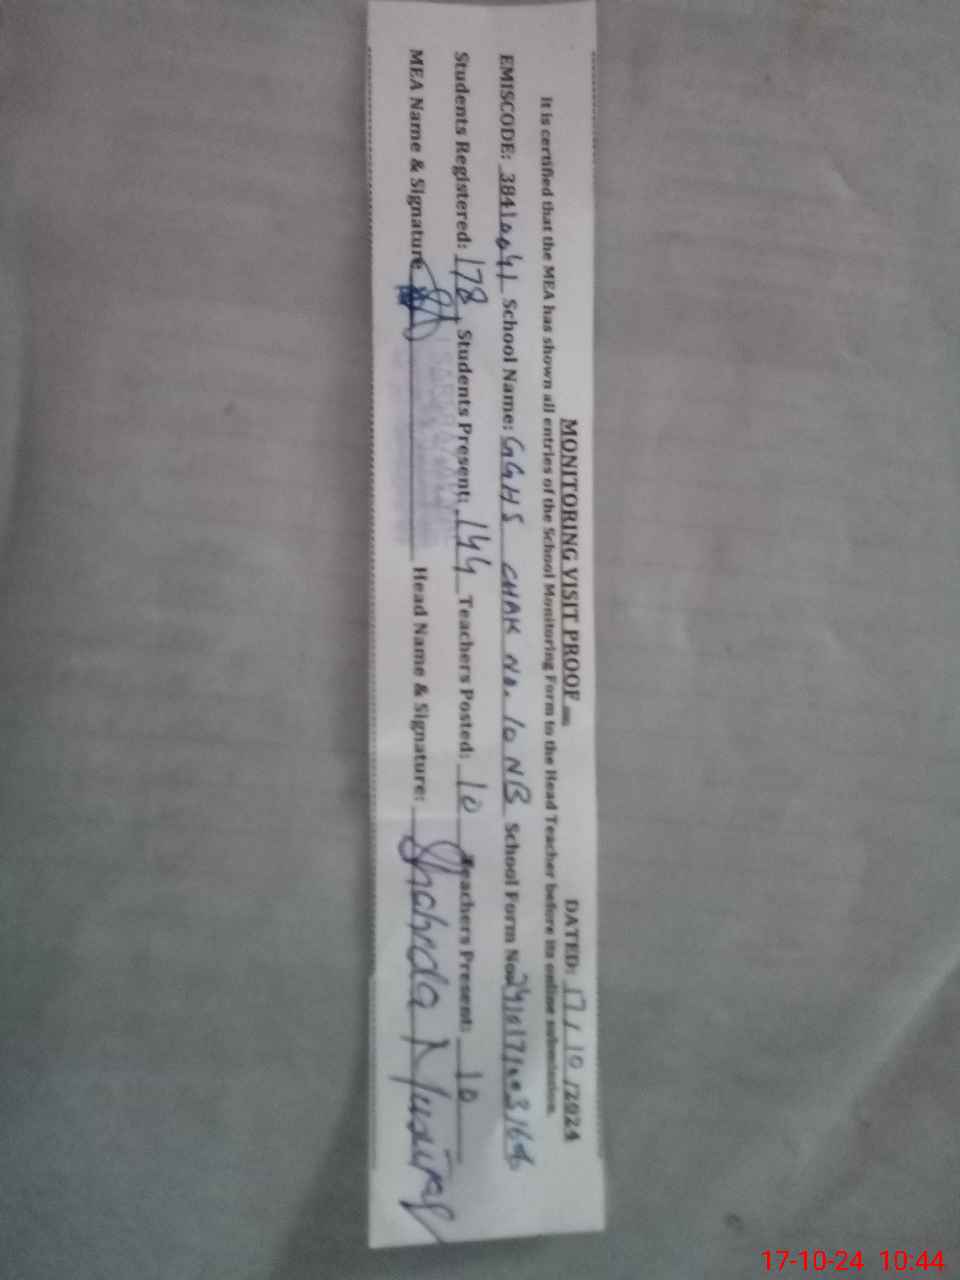 MONITORING VISIT PROOF DATED: 17/10/2024
It is certified that the MEA has shown all entries of the School Monitoring Form to the Head Teacher before its online submission.
EMISCODE: 38410041 School Name: GGHS CHAK No. 10 NB School Form No.
Students Registered: 178 Students Present: 144 Teachers Posted: 10 Teachers Present: 10
MEA Name & Signature Head Name & Signature: Shahida
17-10-24 10:44